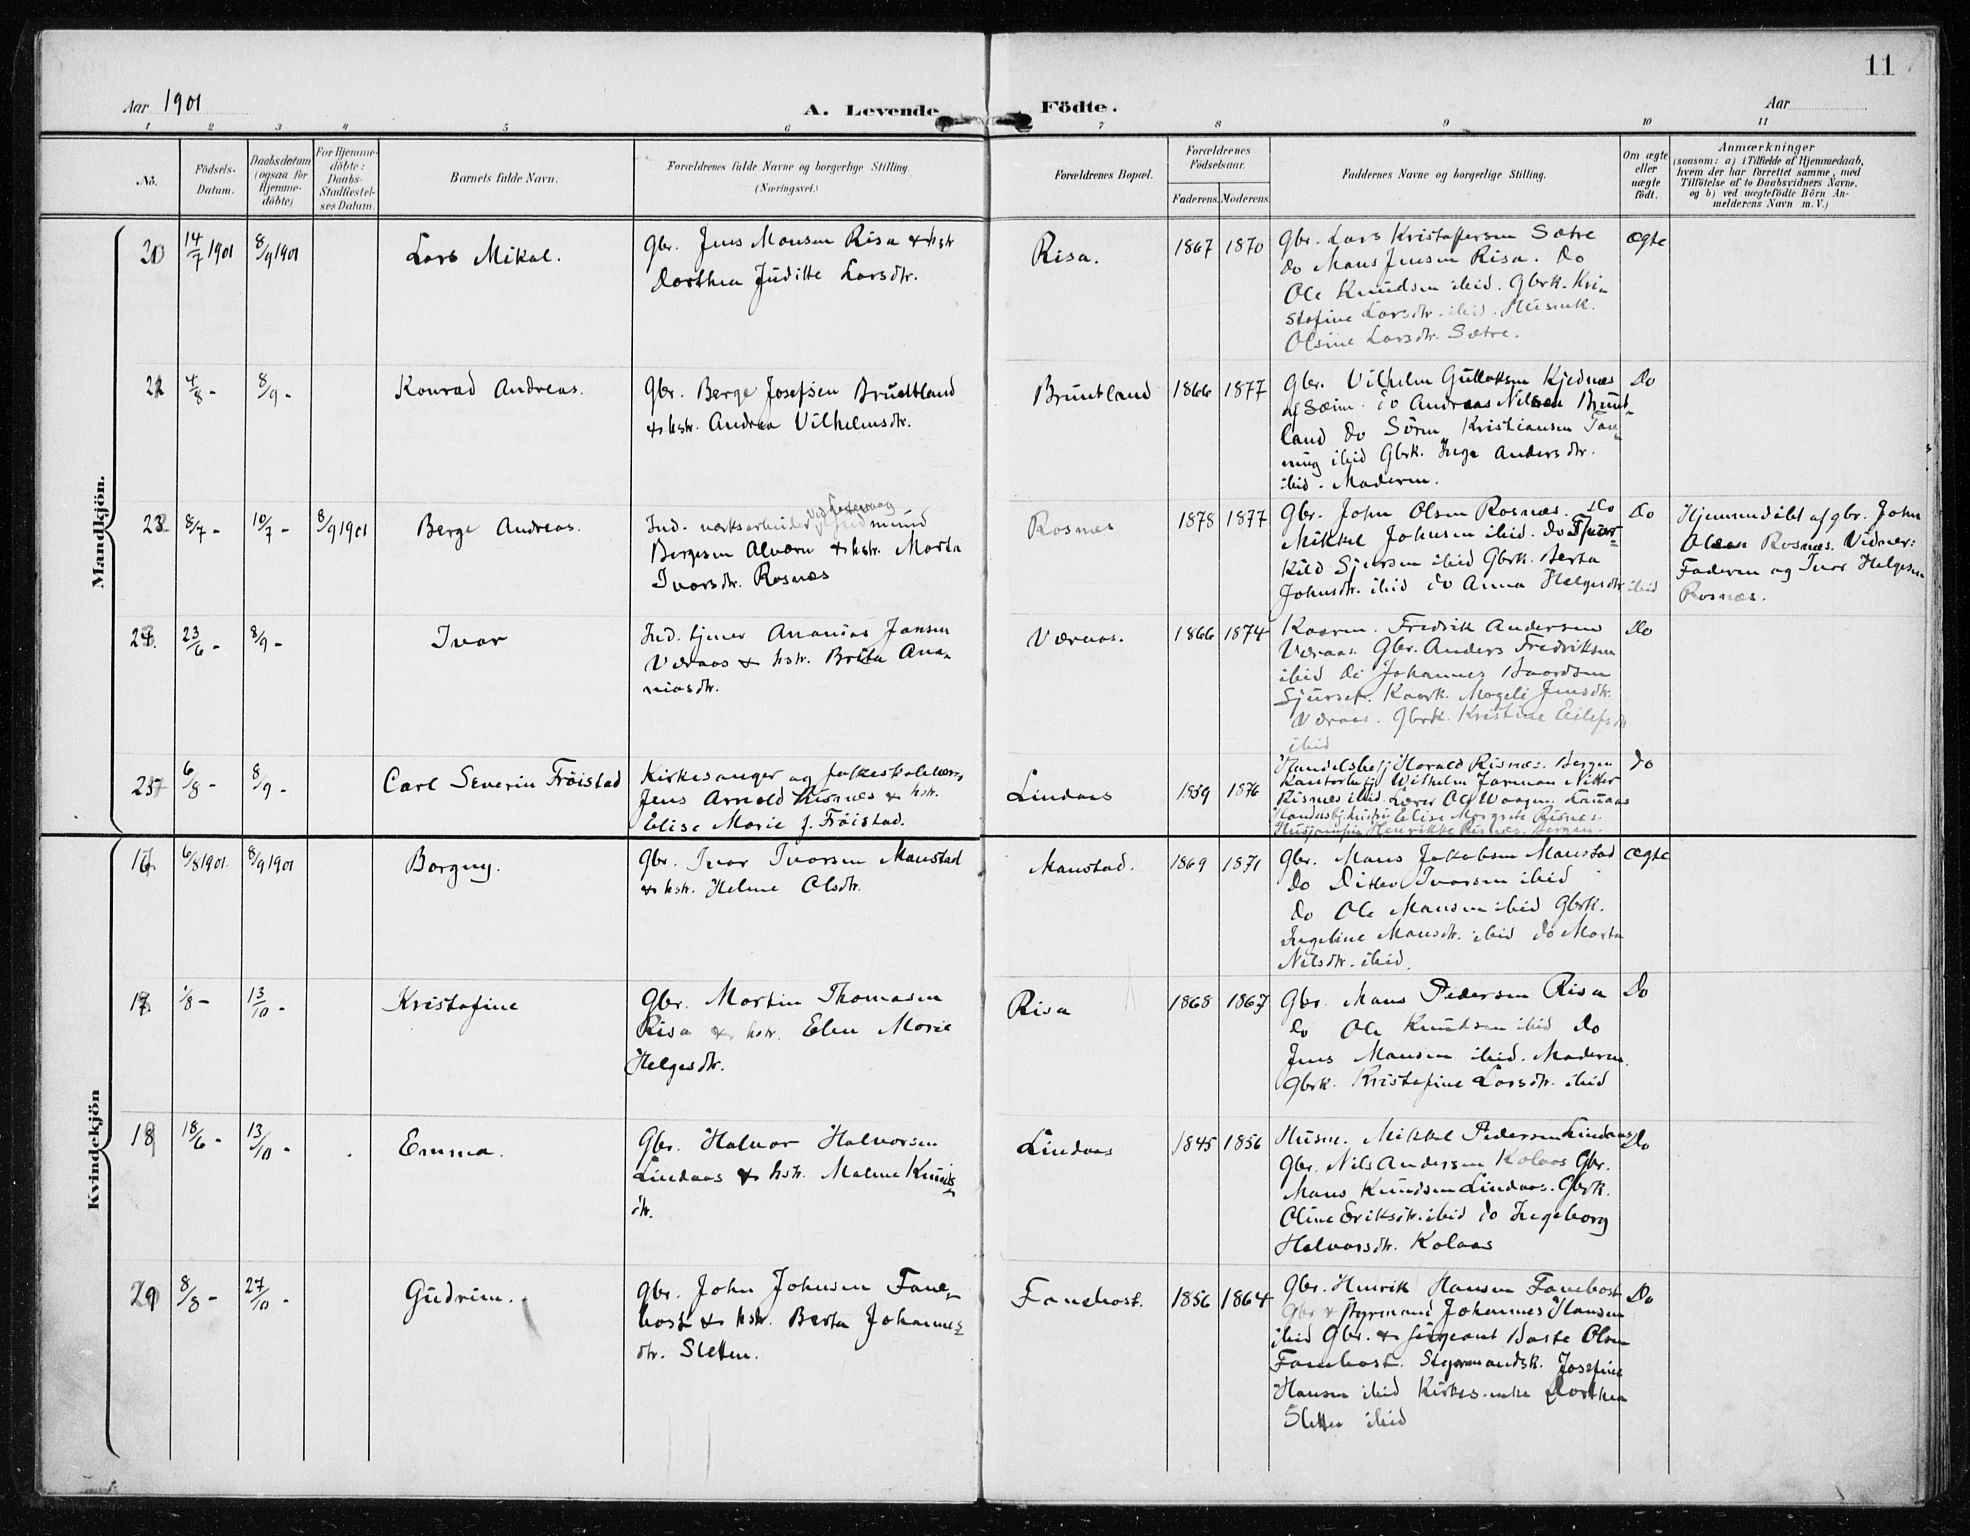 11
Aar 1901
A. Levende Födte.
Aar
1 2 3 4 5 6 7 8 9 10 11
No.
Födsels-Datum.
Daabsdatum (ogsaa for Hjemme-döbte)
For Hjemme-döbte: Daabs-Stadfæstel-ses Datum.
Barnets fulde Navn.
Forældrenes fulde Navne og borgerlige Stilling. (Næringsvei.)
Forældrenes Bopæl.
Forældrenes Födselsaar.
Faderens. Moderens.
Faddernes Navne og borgerlige Stilling.
Om ægte eller uægte født.
Anmærkninger
(saasom: a) i Tilfælde af Hjemmedaab,
hvem der har forrettet samme, med
Tilføielse af to Daabsvidners Navne,
og b) ved uegtefödte Börn An-
melderens Navn m. V.)
Mandkjön.
14/7 1901 8/9 1901 Lars Mikal.
Gbr. Jens Monsen Risa & hstr
Dorthea Juditte Larsdtr.
Risa. 1867 1870
Gbr. Lars Kristofersen Sætre
do Mons Jensen Risa. Do
Ole Knudsen ibid. Gbrk. Kri-
stofine Larsdtr. ibid. Husmk.
Olsine Larsdtr. Sætre.
Ægte
4/8 - 8/9 - Konrad Andreas.
Gbr. Berge Josefsen Bruntland
& hstr. Andrea Vilhelmsdtr.
Bruntland 1866 1877
Gbr. Vilhelm Gullaksen Kjednæs
af Sæim. do Andreas Nilsen Brunt-
land do Sören Kristiansen Fan-
ning ibid Gbrk. Inga Andersdtr.
ibid. Moderen.
Do
8/7 - 10/7 - 8/9 1901 Berge Andreas.
Ind. værksarbeider Gudmund
Bergesen Alværn & hstr. Marta
Ivarsdtr. Rosnæs
Rosnæs 1878 1877
Gbr. John Olsen Rosnæs. Do
Mikkel Johnsen ibid. do
Sjursen ibid Gbrk. Berta
Johnsdtr. ibid do Anna Helgesdtr ibid
Do
Hjemmedöbt af gbr. John
Olsen Rosnæs. Vidner:
Faderen og Ivar Helgesen
Rosnæs.
23/6 - 8/9 - Ivar
Ind. tjener Ananias Jansen
Væraas & hstr. Brita Ana-
niasdtr.
Væraas. 1866 1874
Kaarm. Fredrik Andersen
Væraas. Gbr. Anders Fredriksen
ibid do Johannes Baardsen
Sjurset. Kaark. Mageli Jensdtr.
Væraas. Gbrk. Kristine Eilefsdtr
ibid
Do
6/8 - 8/9 - Carl Severin Fröistad
Kirkesanger og folkeskolelærer
Jens Arnold Risnæs & hstr.
Elise Marie f. Fröistad.
Lindaas 1839 1876
Harald Risnæs. Bergen
Wilhelm Jarman Nitter
Risnæs ibid. Lærer Ole Waagen. Lauvaas
Elise Margrete Risnes.
Henrikke Risnæs. Bergen.
Do
Kvindekjön
16 6/8 1901. 8/9 1901 Borgny.
Gbr. Ivar Ivarsen Monstad
& hstr. Helene Olsdtr.
Monstad. 1869 1871
Gbr. Mons Jakobsen Monstad
do Ditlev Ivarsen ibid
do Ole Monsen ibid Gbrk.
Ingeline Monsdtr. ibid do Marta
Nilsdtr. ibid.
Ægte
17 1/8 - 13/10 - Kristofine
Gbr. Martin Thomasen
Risa & hstr. Elen Marie
Helgesdtr.
Risa 1868 1867
Gbr. Mons Pedersen Risa
do Ole Knudsen ibid do
Jens Monsen ibid. Moderen.
Gbrk. Kristofine Larsdtr. ibid
Do
18 18/6 - 13/10 - Emma.
Gbr. Halvor Halvorsen
Lindaas & hstr. Malene Knuds-
dtr.
Lindaas 1845 1856
Husm. Mikkel Pedersen Lindaas
Gbr. Nils Andersen Kolaas Gbr.
Mons Knudsen Lindaas. Gbrk.
Oline Eriksdtr. ibid do Ingeborg
Halvorsdtr. Kolaas
Do
8/8 - 27/10 - Gudrun.
Gbr. John Johnsen Fane-
bost & hstr. Berta Johannes-
dtr. Sletten.
Fanebost. 1856 1864
Gbr. Henrik Hansen Fanebost
Gbr & styrmand Johannes Hansen
ibid Gbr. & sergeant Baste Olsen
Fanebost. Styrmandsk. Josefine
Hansen ibid Kirkes. enke Dorthea
Sletten ibid
Do